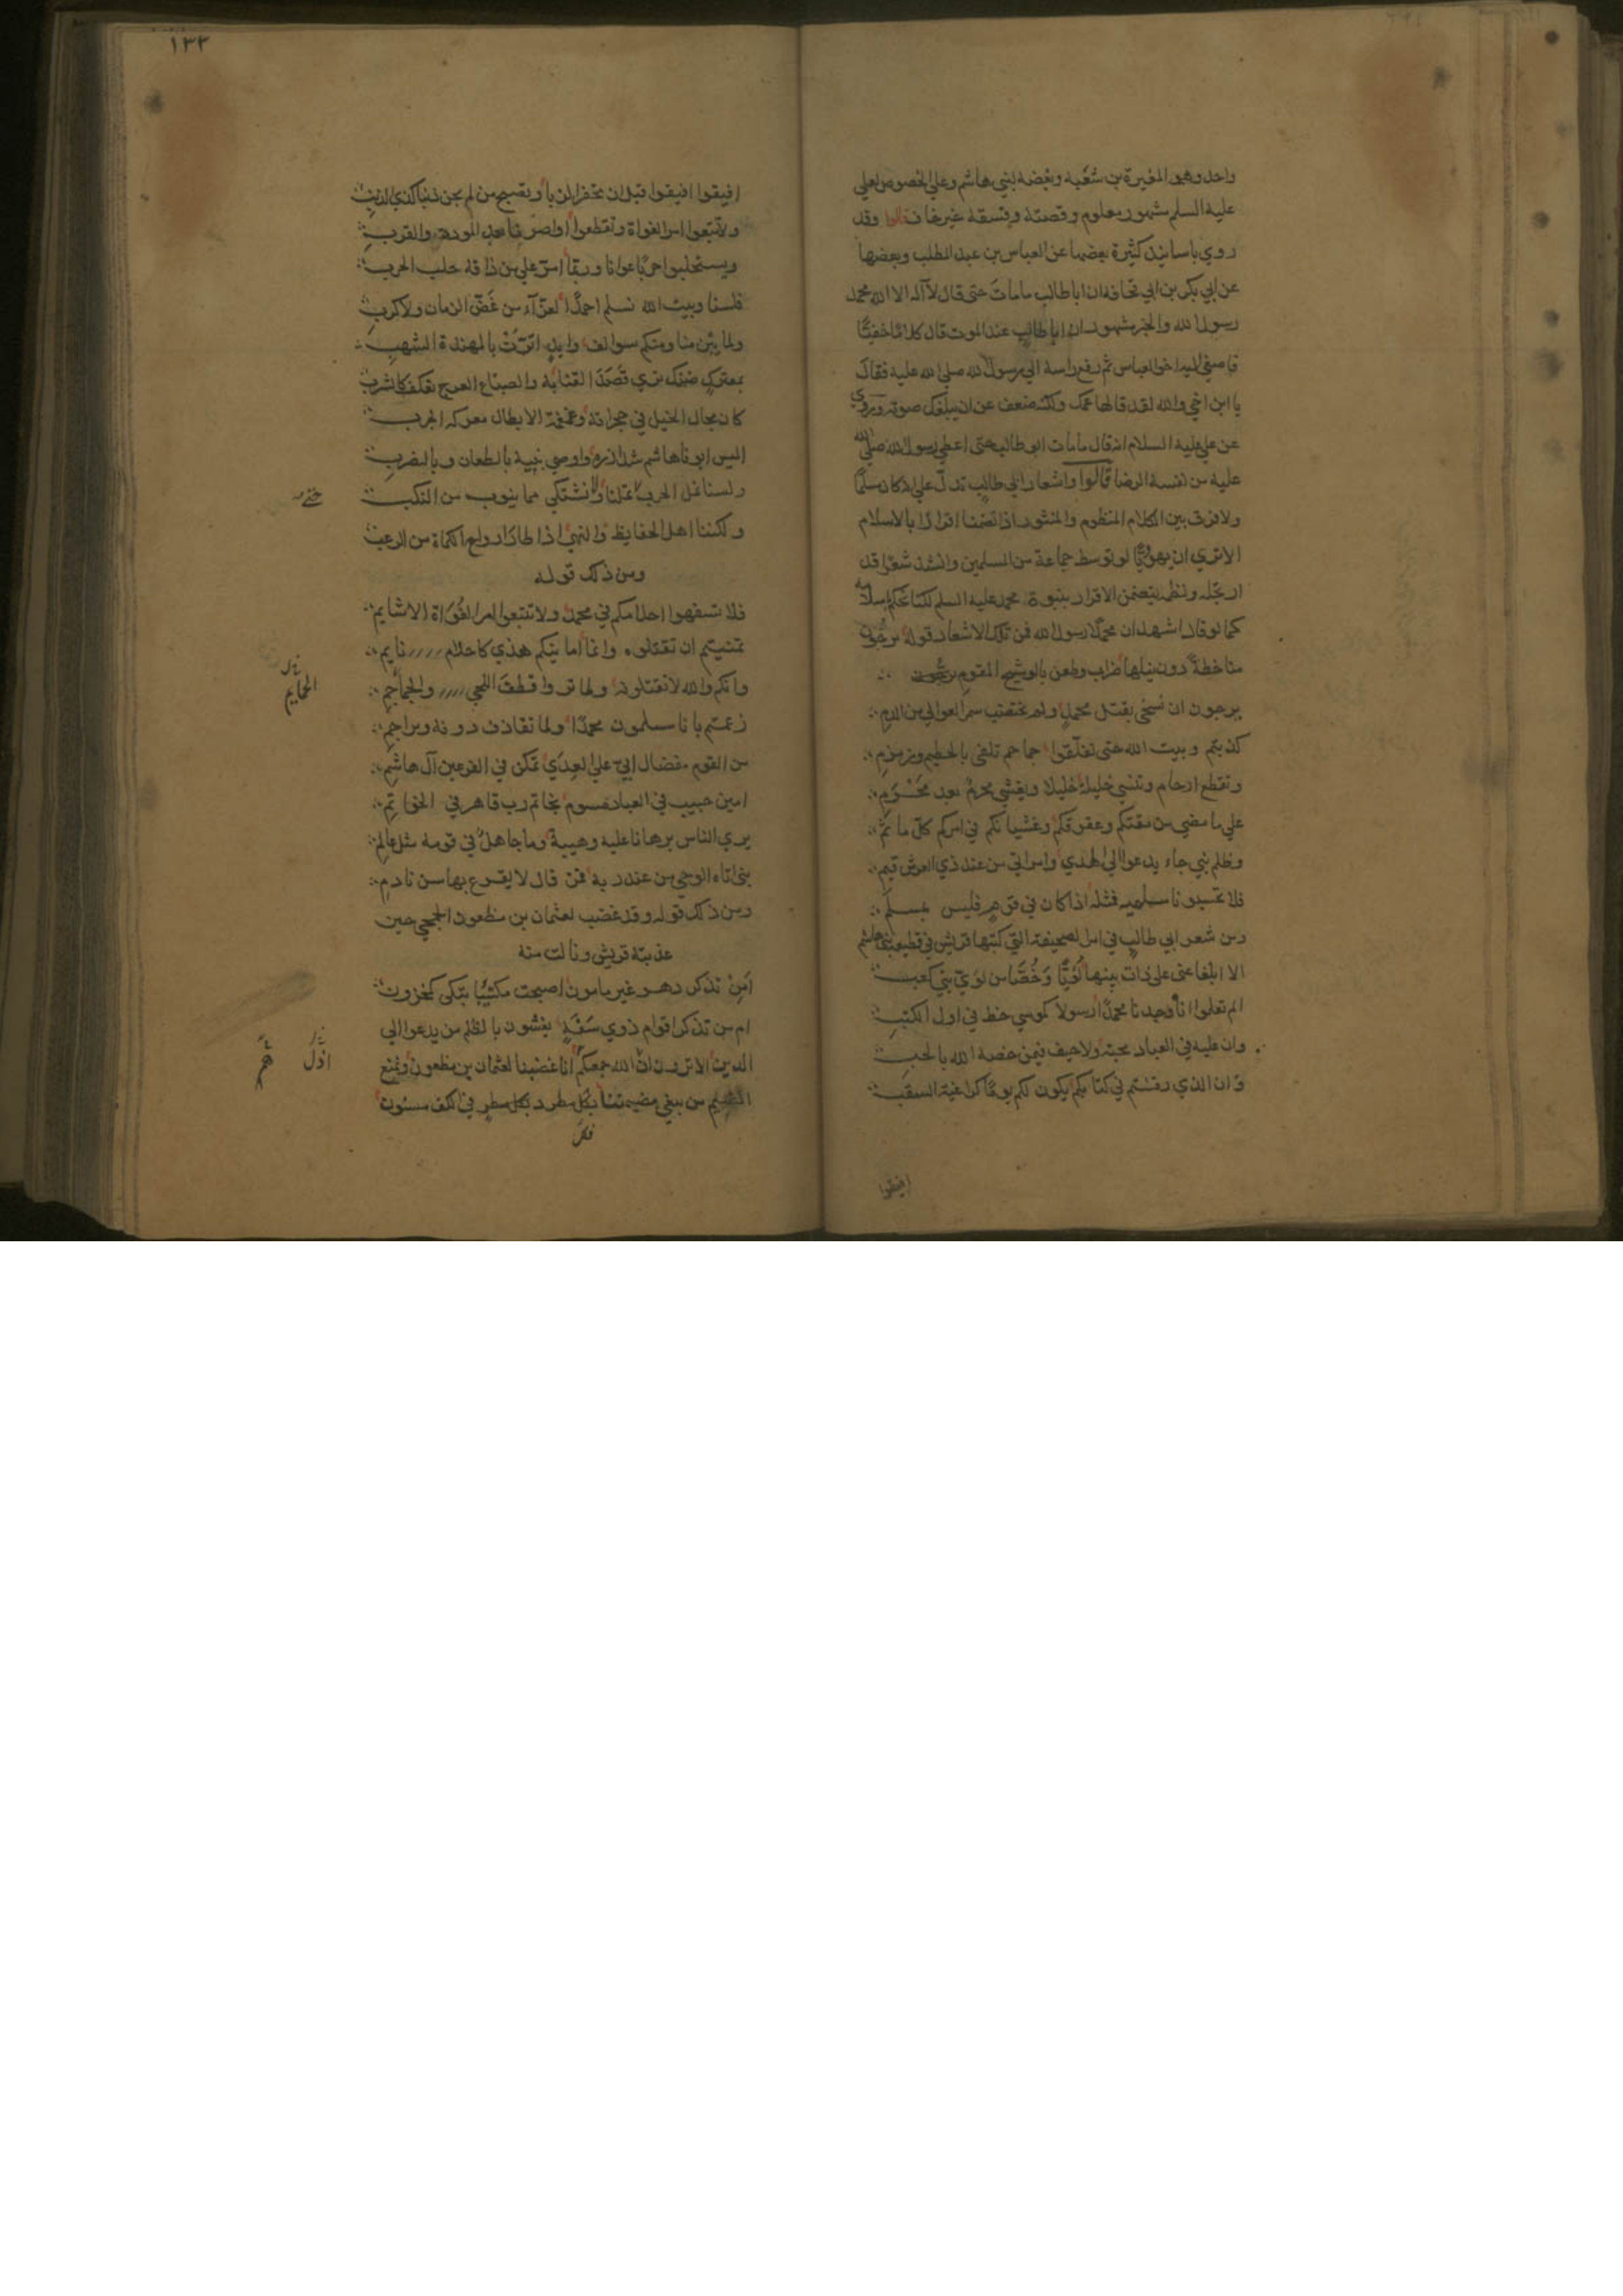 واحد وهو المغيرة بن شعبه وبغضه لبني هاشم وعلي الخصوص لعلي
عليه السلم مشهور معلوم وقصته وفسقه غير خاف قالوا وقد
روي باسانيد كثيرة بعضها عن العباس بن عبد المطلب وبعضها
عن ابي بكر بن ابي قحافه ان ابا طالب مامات حتى قال لا اله الا الله محمد
رسول الله والخبر مشهور ان ابا طالب عند الموت قال كلاما خفيا
فاصغي اليه اخوه العباس ثم رفع راسه الي رسول الله صلي الله عليه فقال
يا ابن اخي والله لقد قالها عمك ولكنه ضعف عن ان يبلغك صوته وروي
عن علي عليه السلام انه قال مامات ابو طالب حتى اعطي رسول الله صلي الله
عليه من نفسه الرضا قالوا واشعار ابي طالب تدل علي انه كان مسلما
ولا فرق بين الكلام المنظوم والمنثور اذا تضمنا اقرارا بالاسلام
الا تري ان يهوديا لو توسط جماعة من المسلمين وانشد شعرا قد
ارتجله ونظمه يتضمن الاقرار بنبوة محمد عليه السلم لكنا نحكم باسلامه
كما لو قال اشهد ان محمدا رسول الله فمن تلك الاشعار قوله يرجون
منا خطة دون نيلها ضراب وطعن بالوشيج المقوم
يرجون ان نسخى بقتل محمد ولم تختضب سمر العوالي من الدم
كذبتم وبيت الله حتى تفلقوا جماجم تلقى بالحطيم وزمزم
وتقطع ارحام وتنسي خليلة خليلا ويغشي محرم بعد محرم
علي ما مضي من مقتكم وعقوقكم وغشيانكم في امركم كل ماثم
وظلم نبي جاء يدعوا الي الهدي وامر اتي من عند ذي العرش قيم
فلا تحسبونا مسلميه فمثله اذا كان في قوم فليس بمسلم
ومن شعر ابي طالب في امر الصحيفة التي كتبتها قريش في قطيعة بني هاشم
الا ابلغا عني علي ذات بينها لؤيا وخصا من لوي بني كعب
الم تعلموا انا وجدنا محمدا رسولا كموسي خط في اول الكتب
وان عليه في العباد محبة ولا حيف فيمن خصه الله بالحب
وان الذي رقشتم في كتابكم يكون لكم يوما كراغية السقب
افيقوا
١٣٣
افيقوا افيقوا قبل ان تحفر الزبا ويصبح من لم يجن ذنبا كذي الذنب
ولا تتبعوا امر الغواة وتقطعوا اواصرنا بعد المودة والقرب
ويستحلبوا حربا عوانا وربما امر علي من ذاقه حلب الحرب
فلسنا وبيت الله نسلم احمدا لعزآء من عض الزمان ولا كرب
ولما تبن منا ومنكم سوالف وايد اترت بالمهندة الشهب
بمعترك ضنك تري قصد القنا به والضباع العرج تعكف كالشرب
كان مجال الخيل في حجراته وغمغمة الابطال معركة الحرب
اليس ابونا هاشم شد ازره واوصي بنيه بالطعان وبالضرب
ولسنا نمل الحرب حتى تملنا ولا نشتكي مما ينوب من النكب
ولكننا اهل الحفايظ والنهي اذا طار ارواح الكماة من الرعب
ومن ذلك قوله
فلا تسفهوا احلامكم في محمد ولا تتبعوا امر الغواة الاشايم
تمنيتم ان تقتلوه وانما امانيكم هذي كاحلام نايم
وانكم والله لا تقتلونه ولما تروا قطف اللحي والجماجم
زعمتم بانا مسلمون محمدا ولما نقاذف دونه ونراجم
من القوم مفضال ابي علي العدي تمكن في الفرعين آل هاشم
امين حبيب في العباد مسوم بخاتم رب قاهر في الخواتم
يري الناس برهانا عليه وهيبة وما جاهل في قومه مثل عالم
نبي اتاه الوحي من عند ربه فمن قال لا يقرع بها سن نادم
ومن ذلك قوله وقد غضب لعثمان بن مظعون الجمحي حين
عذبته قريش ونالت منه
امن تذكر دهر غير مامون اصبحت مكتئبا تبكي كمحزون
ام من تذكر اقوام ذوي سفه يغشون بالظلم من يدعوا الي
الدين الا ترون اذل الله جمعكم انا غضبنا لعثمان بن مظعون ونمنع
الضيم من يبغي مضيمتنا بكل مطرد في الكف مسنون
الجمايم